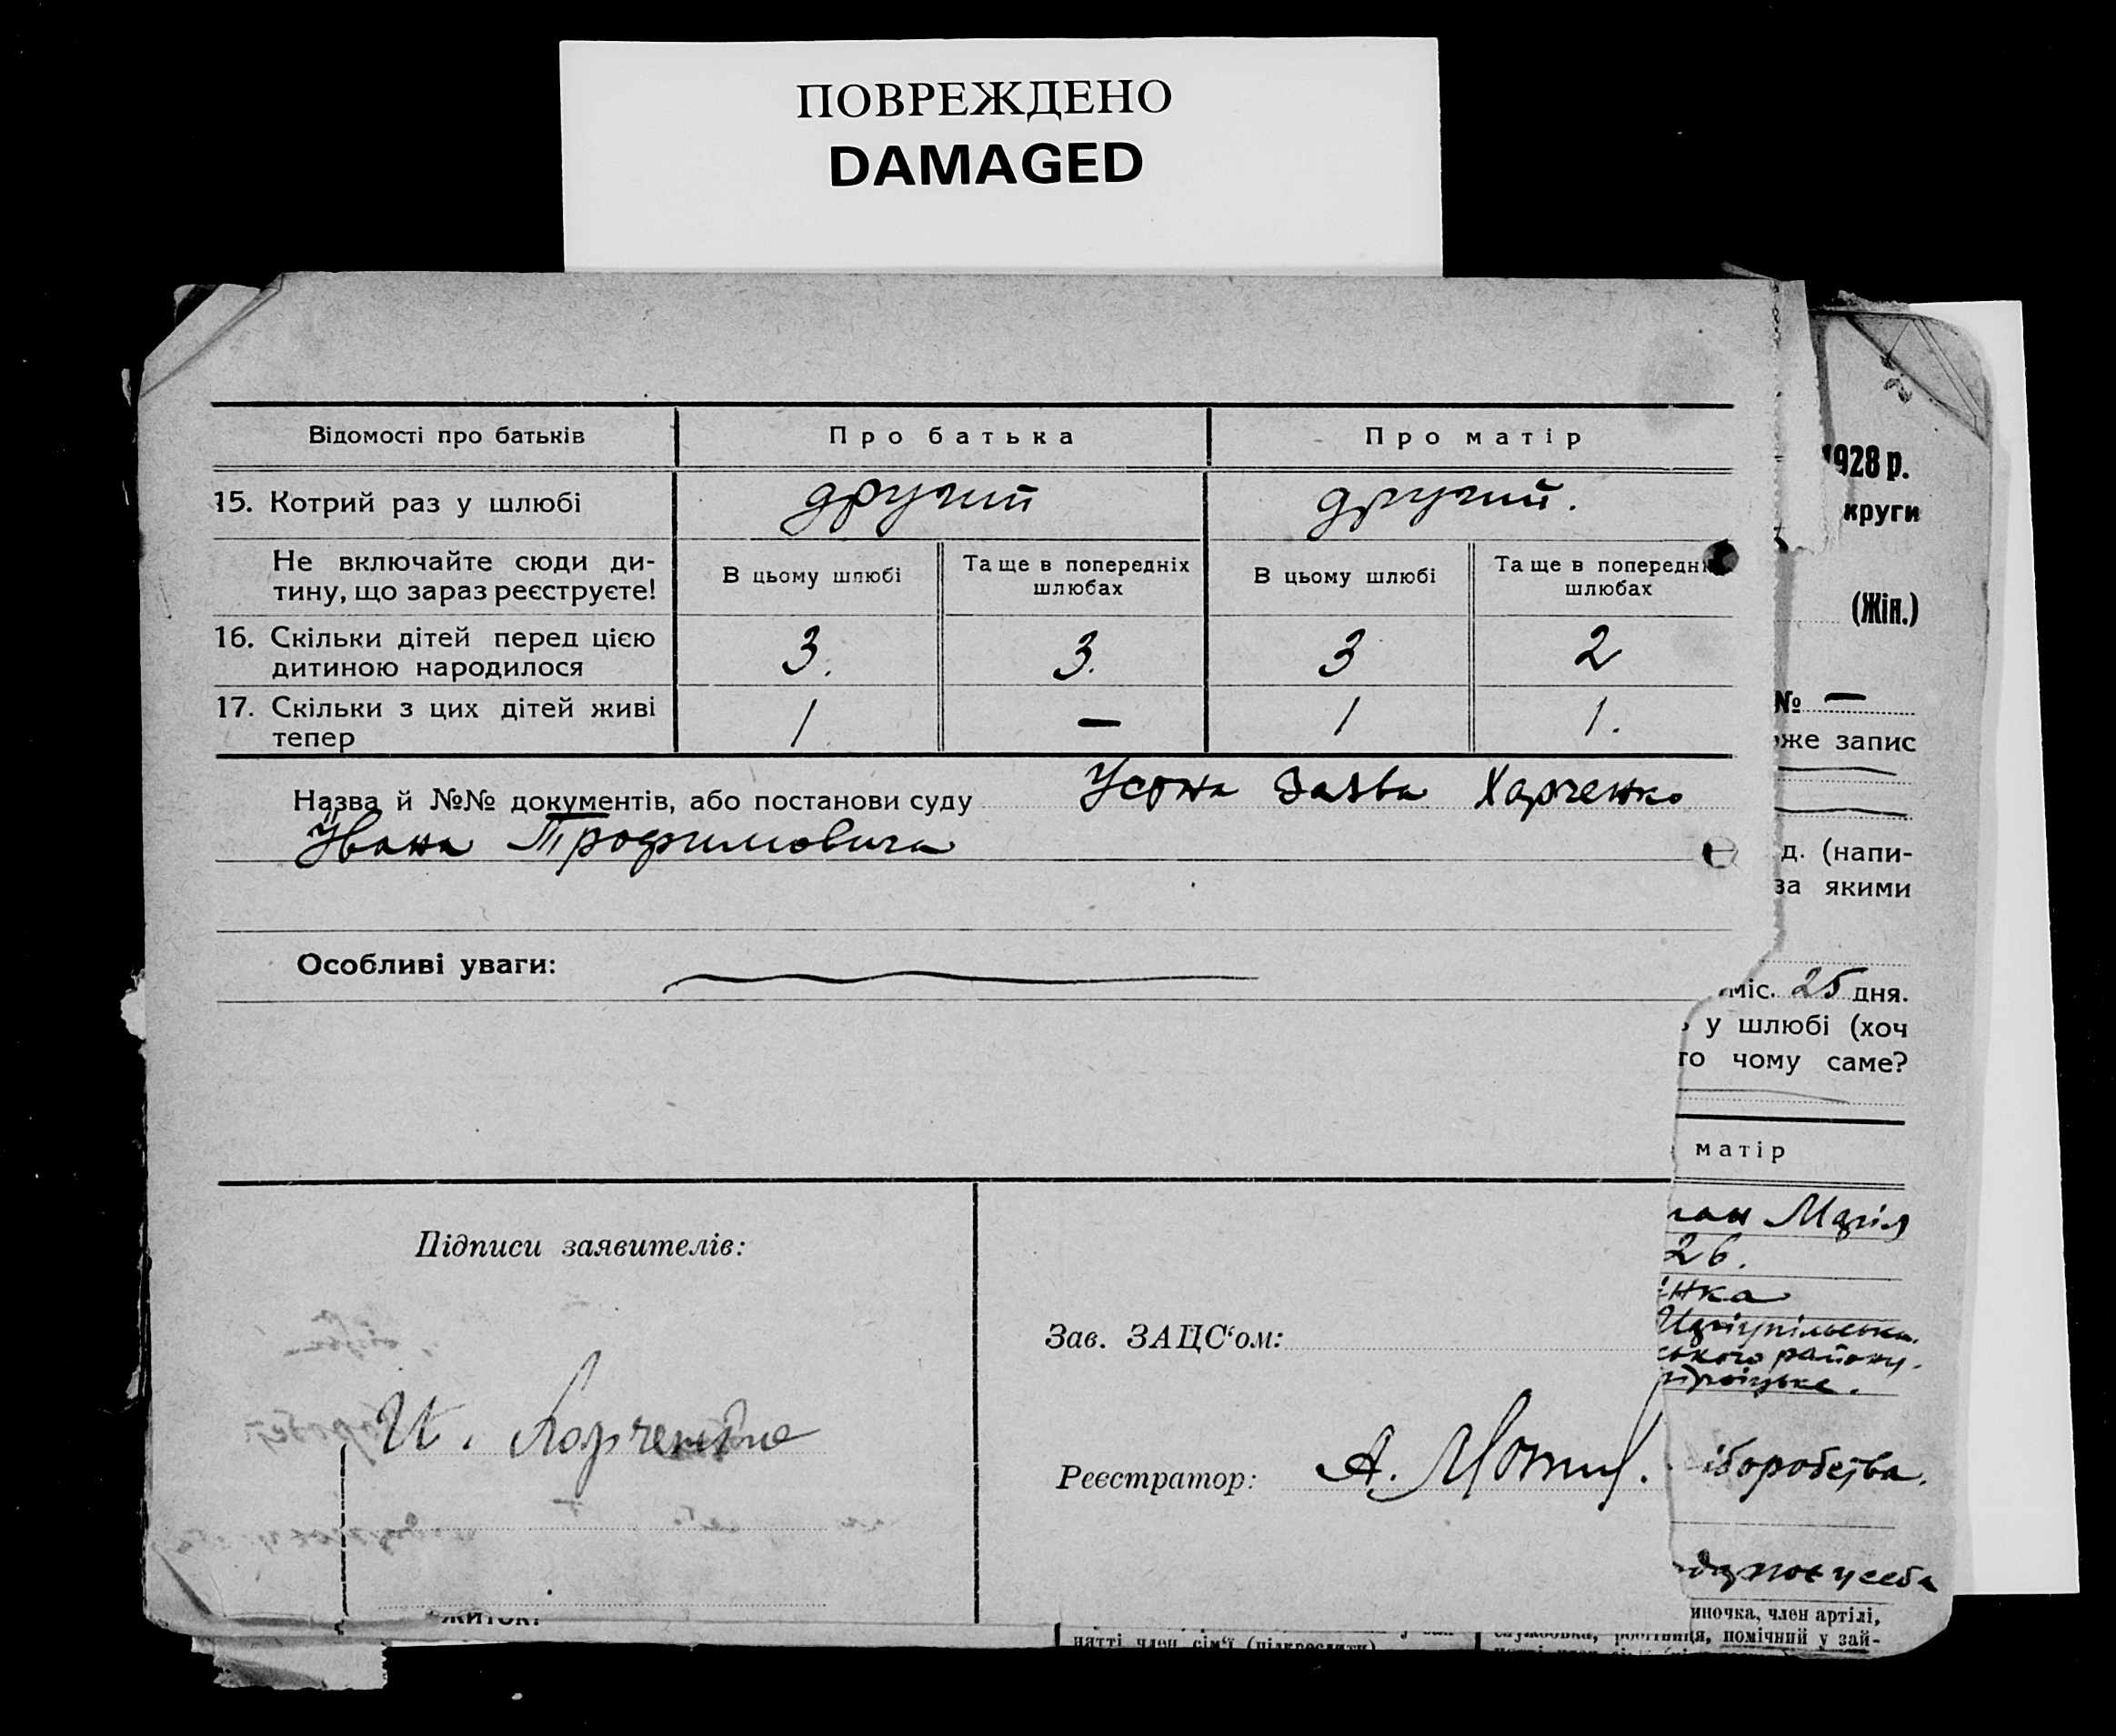 ПОВРЕЖДЕНО
DAMAGED
Відомості про батьків
Про батька
Про матір
15. Котрий раз у шлюбі
другий
другий.
Не включайте сюди ди-
тину, що зараз реєструєте!
В цьому шлюбі
Та ще в попередніх
шлюбах
В цьому шлюбі
Та ще в попередні
шлюбах
16. Скільки дітей перед цією
дитиною народилося
3.
3.
3
2
17. Скільки з цих дітей живі
тепер
1
—
1
1.
Назва й №№ документів, або постанови суду Усна Заява Харченко
Івана Трофимовича
Особливі уваги:
Підписи заявителів:
И. Харченко
Зав. ЗАЦС‘ом:
Реєстратор: А.
1928 р.
круги
(Жін.)
№ —
же запис
д. (напи-
за якими
міс. 25 дня.
у шлюбі (хоч
го чому саме?
матір
Марія
26.
інка
ського району.
іборобства.
иночка, член артілі,
службовка, робітниця, помічний у зай-
нятті член сім‘ї (підкреслити)